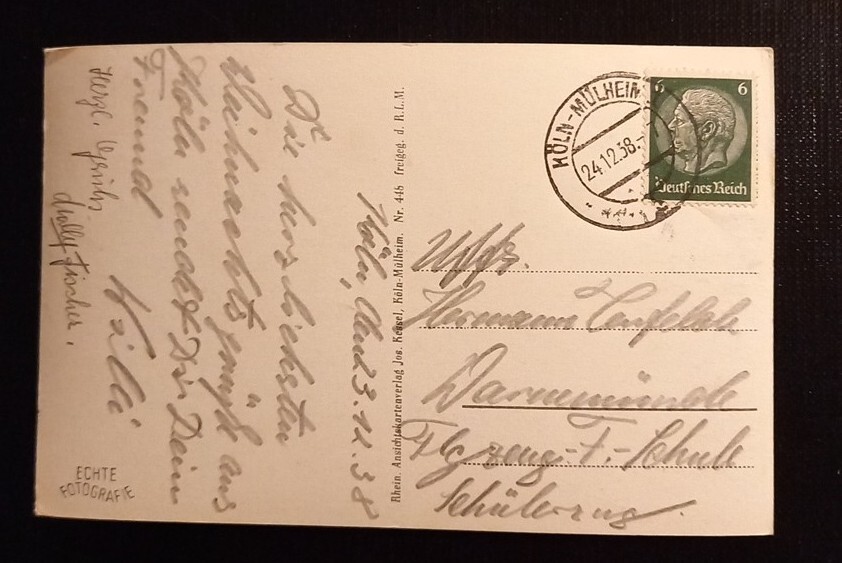 Köln, den 23.12.38
Die herzlichsten
Weihnachtsgrüße aus
Köln sendet Dir Dein
Freund
Willi
Herzl.
Molly Fischer.
ECHTE
FOTOGRAFIE
Rhein. Ansichtskartenverlag Jos. Kessel, Köln-Mülheim. Nr. 445 freigeg. d. R.L.M.
KÖLN-MÜLHEIM
24.12.38.-
6 6
Deutsches Reich
Uffz.
Hermann
Warnemünde
Flgzeug-F.-Schule
Schülerzug.